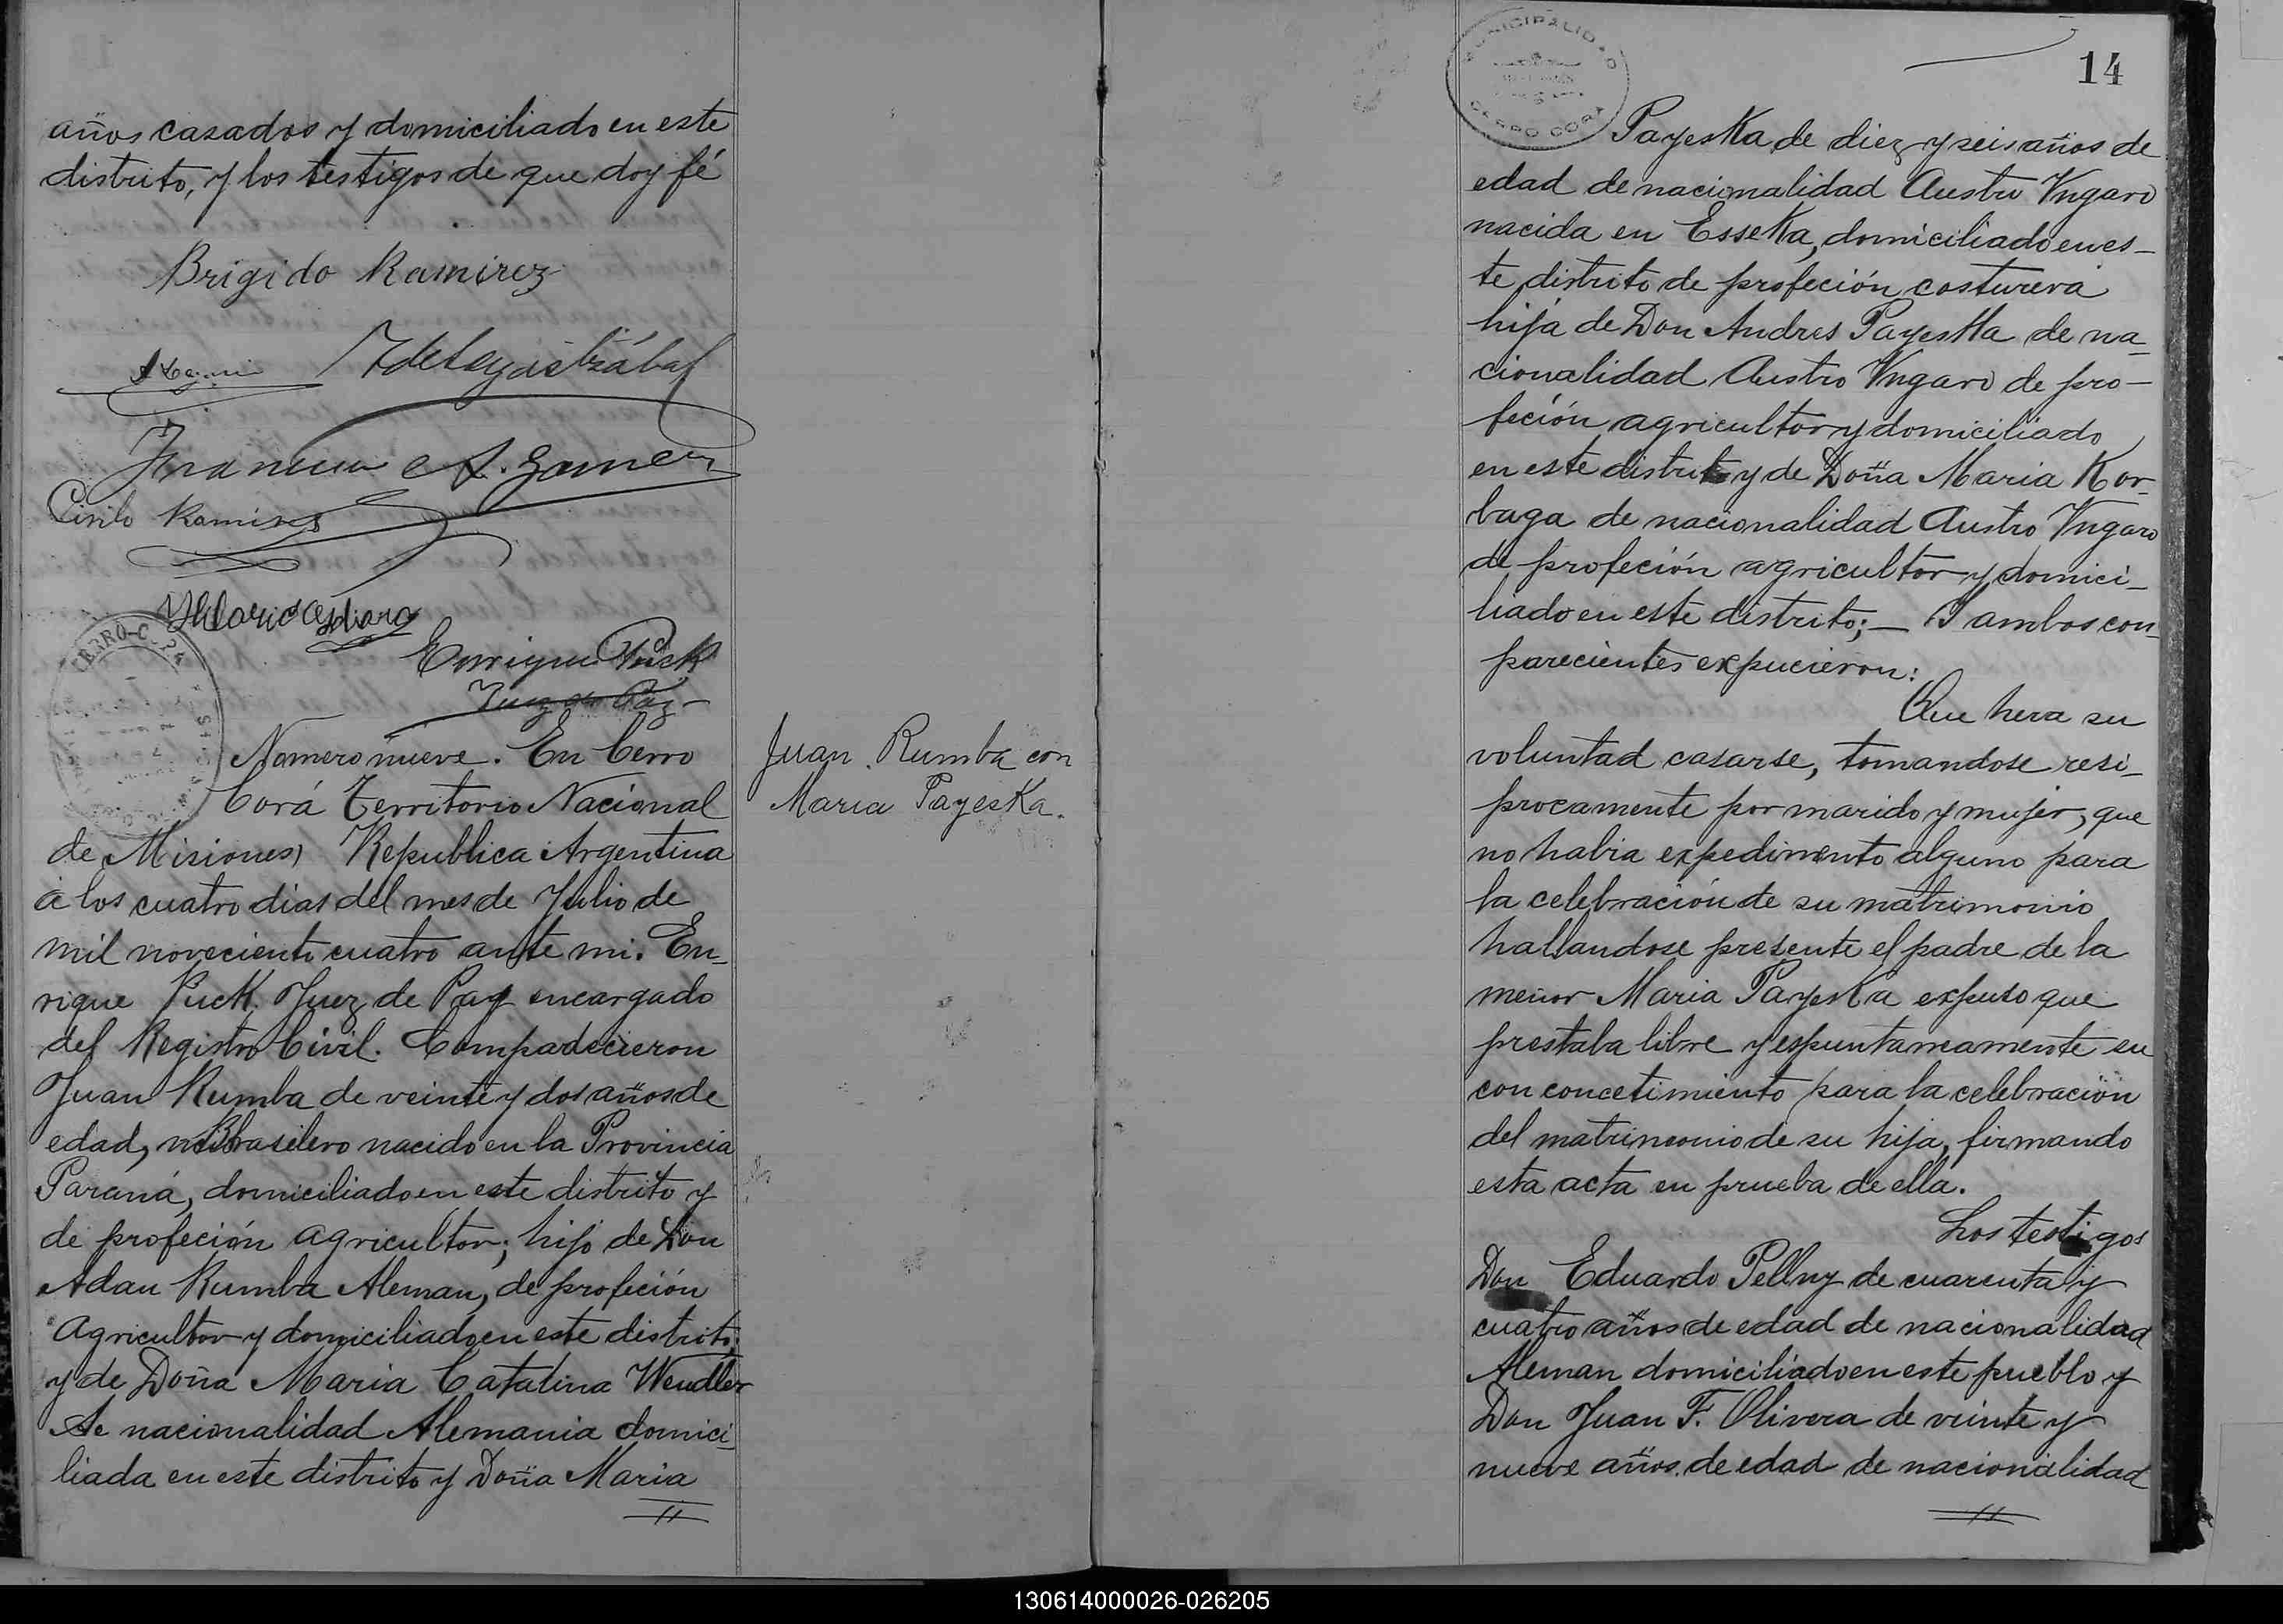 años casados y domiciliado en este
distrito, y los testigos de que doy fé
Brigido Ramirez
Cirilo Ramirez
Enrique Puck
Juez de Paz
Nomero nueve. En Cerro
Corá Territorio Nacional
de Misiones, Republica Argentina
á los cuatro dias del mes de Julio de
mil noveciento cuatro ante mi. En-
rique Puck. Juez de Paz encargado
del Registro Civil. Compadecieron
Juan Rumba de veinte y dos años de
edad, Brasilero nacido en la Provincia
Paraná, domiciliado en este distrito y
de profeción agricultor; hijo de Don
Adan Rumba Aleman, de profeción
Agricultor y domiciliado en este distrito;
y de Doña Maria Catalina Wendler
de nacionalidad Alemania domici-
liada en este distrito y Doña Maria
Juan Rumba con
Maria Payeska.
MUNICIPALIDAD
CERRO CORA
14
Payeska de diez y seis años de
edad de nacionalidad Austro Ungaro
nacida en Esseka, domiciliado en es-
te distrito de profeción costurera
hija de Don Andres Payeska de na-
cionalidad Austro Ungaro de pro-
feción agricultor y domiciliado
en este distrito y de Doña Maria Kor-
baga de nacionalidad Austro Ungaro
de profeción agricultor y domici-
liado en este distrito; — I ambos con-
parecientes expucieron:
Que hera su
voluntad casarse, tomandose resi-
procamente por marido y mujer, que
no habia expedimento alguno para
la celebración de su matrimonio
hallandose presente el padre de la
menor Maria Payeska expuso que
prestaba libre y espuntameamente su
con concetimiento para la celebración
del matrimonio de su hija, firmando
esta acta en prueba de ella.
Los testigos
Don Eduardo Pellny de cuarenta y
cuatro años de edad de nacionalidad
Aleman domiciliado en este pueblo y
Don Juan F. Olivera de veinte y
nueve años de edad de nacionalidad
130614000026-026205